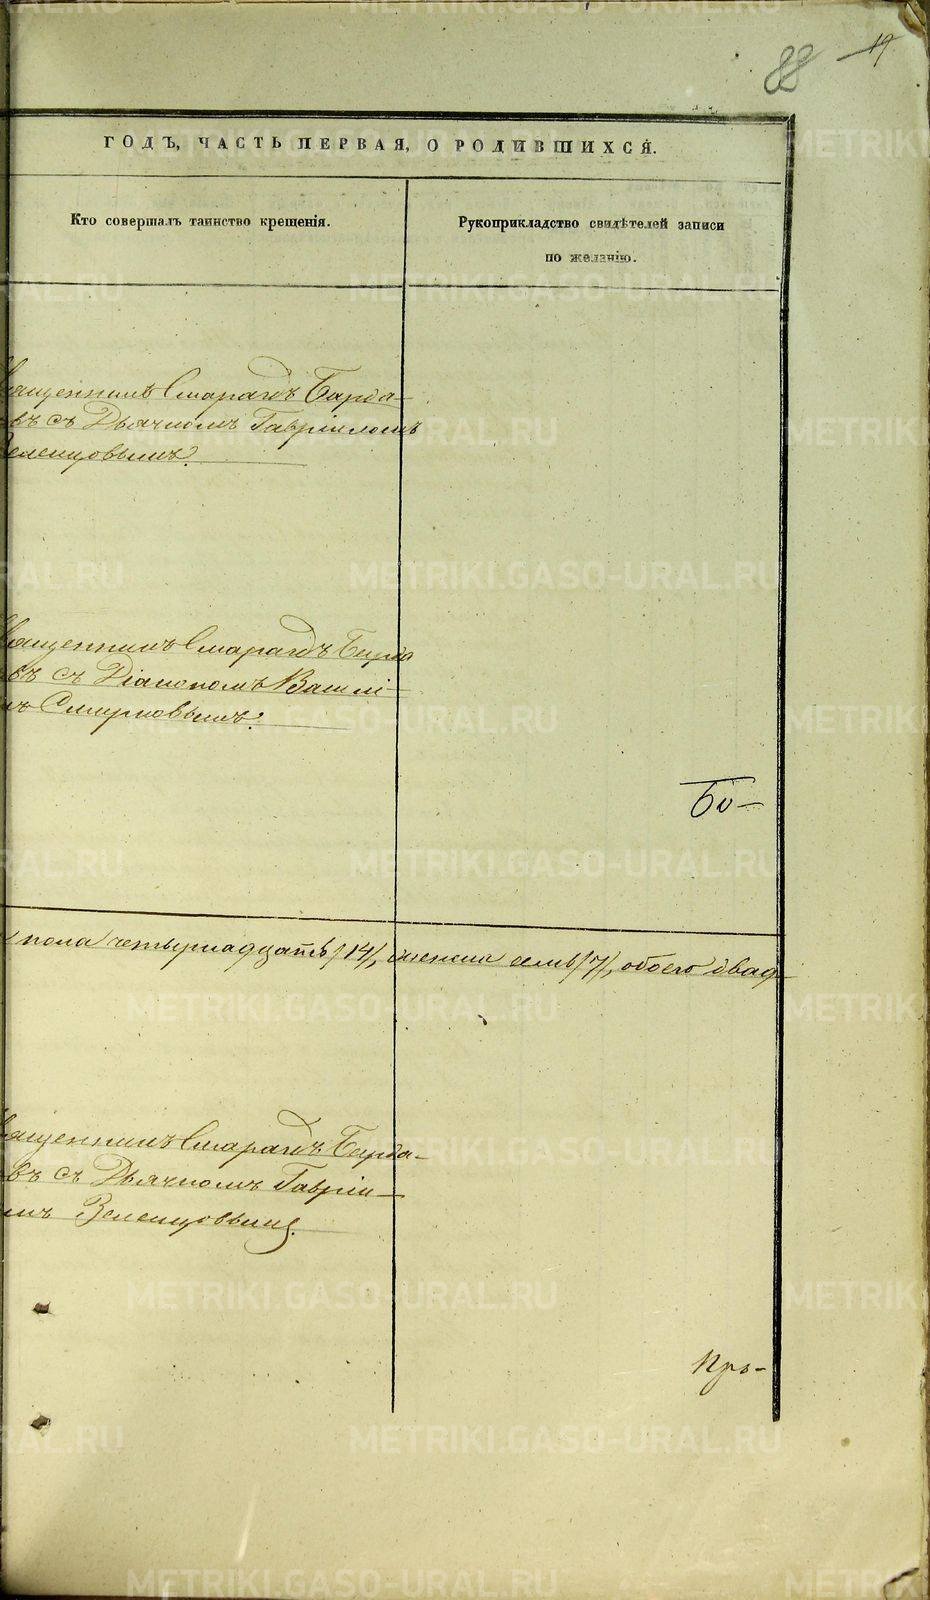 88
19
ГОДЪ, ЧАСТЬ ПЕРВАЯ, О РОДИВШИХСЯ.
Кто совершалъ таинство крещенія.
Рукоприкладство свидѣтелей записи
по желанію.
вященникъ Смарагдъ Бирда-
въ съ Дьячкомъ Гавріиломъ
Зеленцовымъ.
вященникъ Смарагдъ Бирда
въ съ Діакономъ Васили-
мъ Смирновымъ.
пола четырнадцать /14/, женска семь /7/, обоего двад-
вященникъ Смарагдъ Бирда-
въ съ Дьячкомъ Гавріи-
мъ Зеленцовымъ.
METRIKI.GASO-URAL.RU